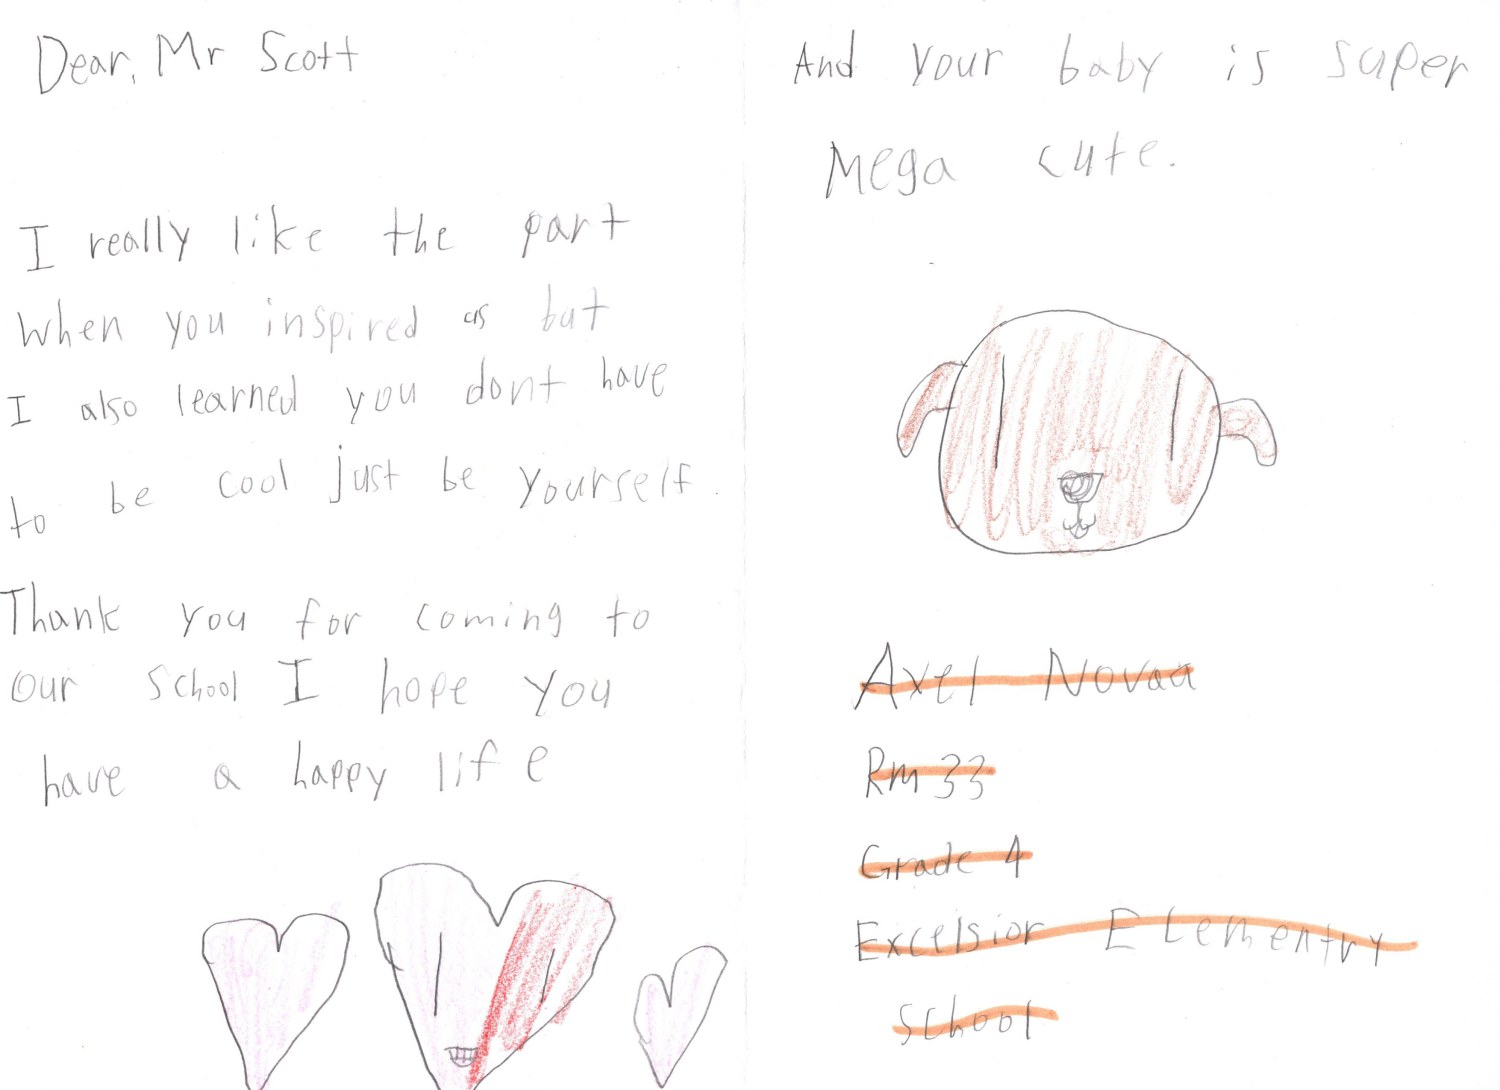 Dear, Mr Scott
I really like the part
when you inspired us but
I also learned you dont have
to be cool just be yourself.
Thank you for coming to
our school I hope you
have a happy life
And your baby is super
Mega cute.
Axel Novaa
Rm 33
Grade 4
Excelsior Elementry
School